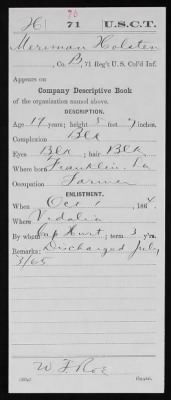 H 71 U.S.C.T.
Meriman Holsten
, Co. B, 71 Reg't U. S. Col'd Inf.
Appears on
Company Descriptive Book
of the organization named above.
DESCRIPTION.
Age years; height 5 feet inches.
Complexion Blk
Eyes Blk ; hair Blk
Where born Franklin, La
Occupation Farmer
ENLISTMENT.
When Oct 1 , 186
Where Vidalia
By whom Cap Hurt ; term 3 y'rs.
Remarks: Discharged July
3/65
W F Roe
Copyist.